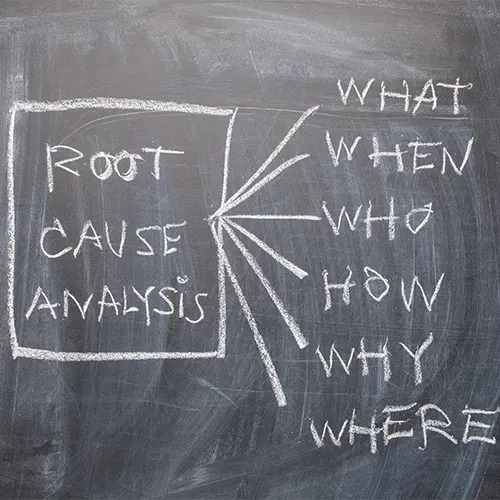 ROOT
CAUSE
ANALYSIS
WHAT
WHEN
WHO
HOW
WHY
WHERE